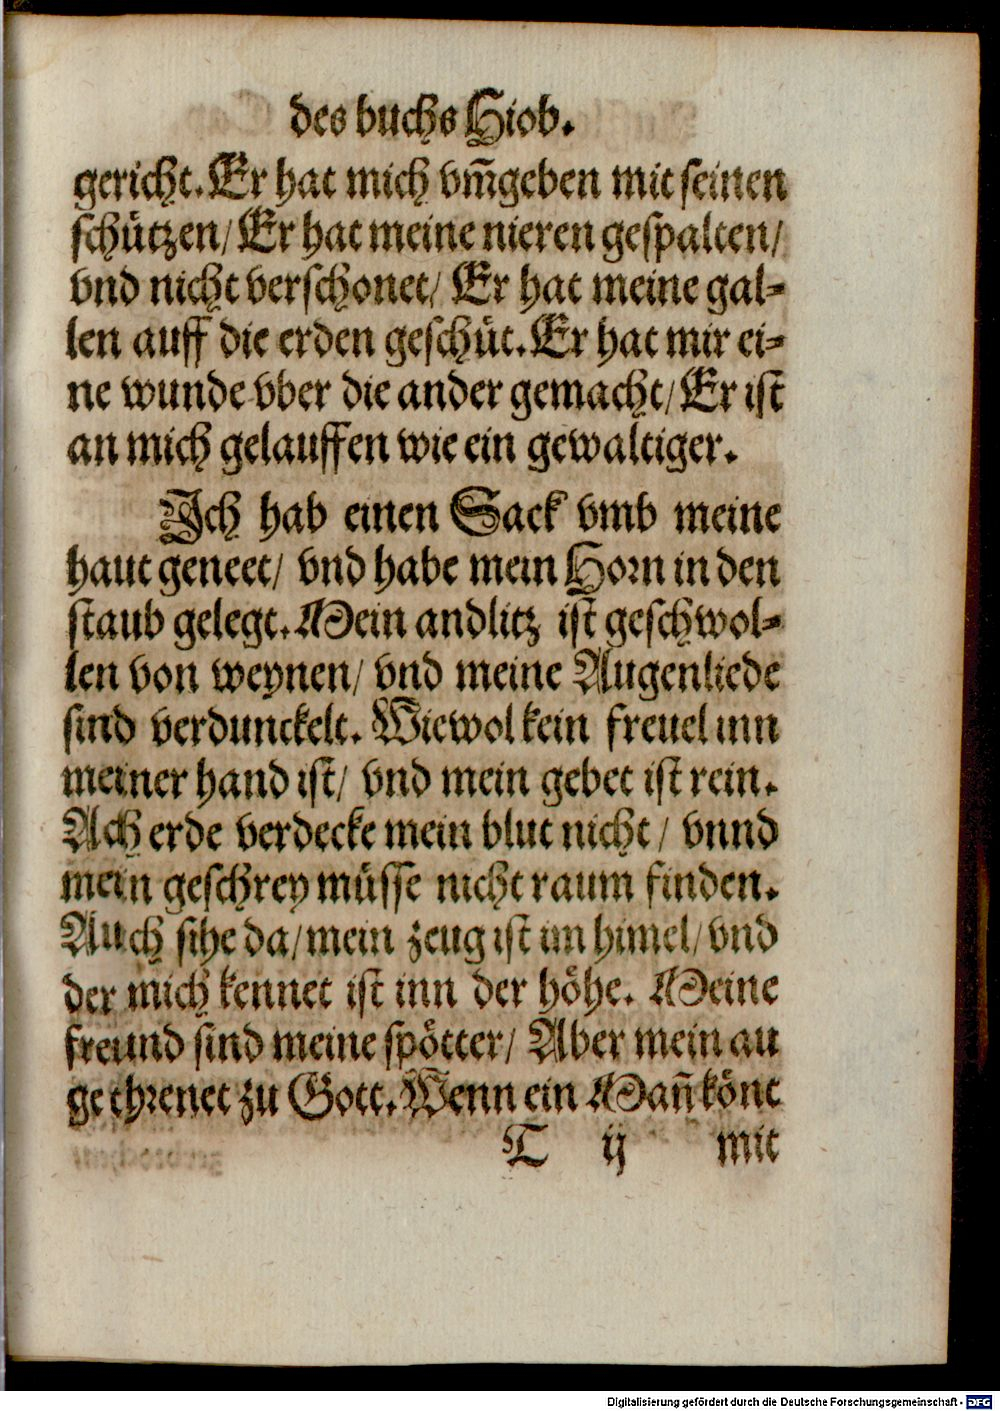 des buchs Hiob.
gericht. Er hat mich vm̄geben mit seinen
schützen/ Er hat meine nieren gespalten/
vnd nicht verschonet/ Er hat meine gal-
len auff die erden geschüt. Er hat mir ei-
ne wunde vber die ander gemacht/ Er ist
an mich gelauffen wie ein gewaltiger.
Ich hab einen Sack vmb meine
haut geneet/ vnd habe mein Horn in den
staub gelegt. Mein andlitz ist geschwol-
len von weynen/ vnd meine Augenliede
sind verdunckelt. Wiewol kein freuel inn
meiner hand ist/ vnd mein gebet ist rein.
Ach erde verdecke mein blut nicht/ vnnd
mein geschrey müsse nicht raum finden.
Auch sihe da/ mein zeug ist im himel/ vnd
der mich kennet ist inn der höhe. Meine
freund sind meine spötter/ Aber mein au
ge threnet zu Gott. Wenn ein Man̄ könt
T ij mit
Digitalisierung gefördert durch die Deutsche Forschungsgemeinschaft - DFG